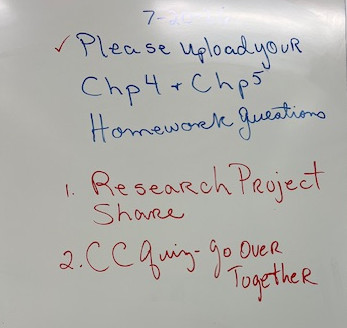 ✓ Please upload your
Chp4 + Chp5
Homework questions
1. Research Project
Share
2. CC Quiz - go over
Together